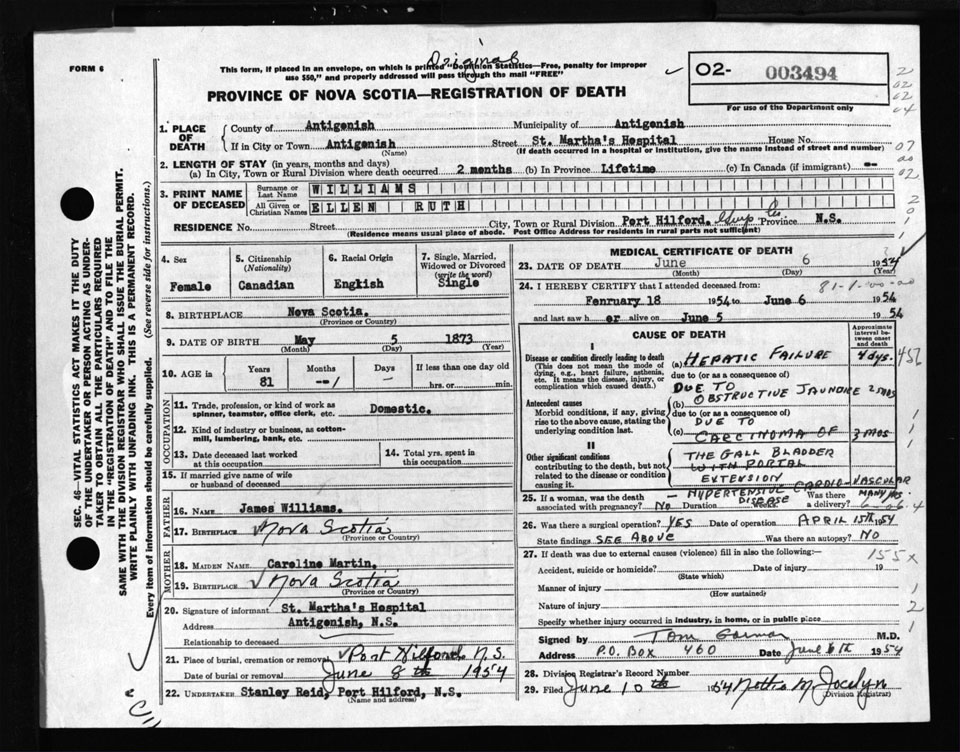 FORM 6
Original
This form, if placed in an envelope, on which is printed "Dominion Statistics—Free, penalty for improper
use $50," and properly addressed will pass through the mail "FREE"
02- 003494
For use of the Department only
PROVINCE OF NOVA SCOTIA—REGISTRATION OF DEATH
1. PLACE OF DEATH County of Antigonish Municipality of Antigonish
If in City or Town Antigonish Street St. Martha's Hospital House No.
(Name) (If death occurred in a hospital or institution, give the name instead of street and number)
2. LENGTH OF STAY (in years, months and days)
(a) In City, Town or Rural Division where death occurred 2 months (b) In Province Lifetime (c) In Canada (if immigrant) --
3. PRINT NAME OF DECEASED Surname or Last Name WILLIAMS
All Given or Christian Names ELLEN RUTH
RESIDENCE No. Street City, Town or Rural Division Port Hilford, Guys Co Province N.S.
(Residence means usual place of abode. Post Office Address for residents in rural parts not sufficient)
4. Sex Female
5. Citizenship (Nationality) Canadian
6. Racial Origin English
7. Single, Married, Widowed or Divorced (write the word) Single
8. BIRTHPLACE Nova Scotia.
(Province or Country)
9. DATE OF BIRTH May 5 1873
(Month) (Day) (Year)
10. AGE in Years 81 Months --1 Days - If less than one day old hrs. or min.
OCCUPATION
11. Trade, profession, or kind of work as spinner, teamster, office clerk, etc. Domestic.
12. Kind of industry or business, as cotton-mill, lumbering, bank, etc.
13. Date deceased last worked at this occupation
14. Total yrs. spent in this occupation
15. If married give name of wife or husband of deceased
FATHER
16. Name James Williams.
17. Birthplace Nova Scotia
(Province or Country)
MOTHER
18. Maiden Name Caroline Martin.
19. Birthplace Nova Scotia
(Province or Country)
20. Signature of informant St. Martha's Hospital
Address Antigonish, N.S.
Relationship to deceased
21. Place of burial, cremation or removal Port Hilford, N.S.
Date of burial or removal June 8th 1954
22. Undertaker Stanley Reid, Port Hilford, N.S.
(Name and address)
MEDICAL CERTIFICATE OF DEATH
23. DATE OF DEATH June 6 1954
(Month) (Day) (Year)
24. I HEREBY CERTIFY that I attended deceased from: 81-1-00-00
Fenruary 18 1954 to June 6 1954
and last saw h er alive on June 5 1954
CAUSE OF DEATH
Approximate interval between onset and death
I
Disease or condition directly leading to death (This does not mean the mode of dying, e.g., heart failure, asthenia, etc. It means the disease, injury, or complication which caused death.)
(a) HEPATIC FAILURE 4 dys. 456
due to (or as a consequence of)
DUE TO
Antecedent causes
Morbid conditions, if any, giving rise to the above cause, stating the underlying condition last.
(b) OBSTRUCTIVE JAUNDICE 2 mos
due to (or as a consequence of)
DUE TO
(c) CARCINOMA OF 3 mos
II
Other significant conditions contributing to the death, but not related to the disease or condition causing it.
THE GALL BLADDER
WITH PORTAL
EXTENSION
- HYPERTENSIVE CARDIO-VASCULAR
DISEASE MANY YRS.
25. If a woman, was the death associated with pregnancy? No Duration weeks. Was there a delivery?
26. Was there surgical operation? YES Date of operation APRIL 15TH 1954
State findings SEE ABOVE Was there an autopsy? NO
27. If death was due to external causes (violence) fill in also the following:— 155x
Accident, suicide or homicide? Date of injury 19
(State which)
Manner of injury
(How sustained)
Nature of injury
Specify whether injury occurred in industry, in home, or in public place
Signed by Tom Gorman M.D.
Address P.O. Box 460 Date June 6th 1954
28. Division Registrar's Record Number
29. Filed June 10th 1954 Nettie M. Jocelyn
(Division Registrar)
SEC. 46—VITAL STATISTICS ACT MAKES IT THE DUTY
OF THE UNDERTAKER OR PERSON ACTING AS UNDER-
TAKER TO OBTAIN ALL THE PARTICULARS REQUIRED
IN THE "REGISTRATION OF DEATH" AND TO FILE THE
SAME WITH THE DIVISION REGISTRAR WHO SHALL ISSUE THE BURIAL PERMIT.
WRITE PLAINLY WITH UNFADING INK. THIS IS A PERMANENT RECORD.
Every item of information should be carefully supplied. (See reverse side for instructions.)